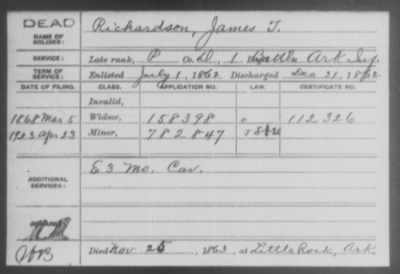 DEAD
NAME OF SOLDIER:
Richardson, James T.
SERVICE:
Late rank, P Co. D, 1 Battln Ark Inf
TERM OF SERVICE:
Enlisted July 1, 1862 Discharged Dec 31, 1862
DATE OF FILING. CLASS. APPLICATION NO. LAW. CERTIFICATE NO.
Invalid,
1868 Mar 5 Widow, 158398 112326
1903 Apr 23 Minor, 782847
ADDITIONAL SERVICES:
E 3 Mo. Cav.
Died Nov. 25, 1863, at Little Rock, Ark.